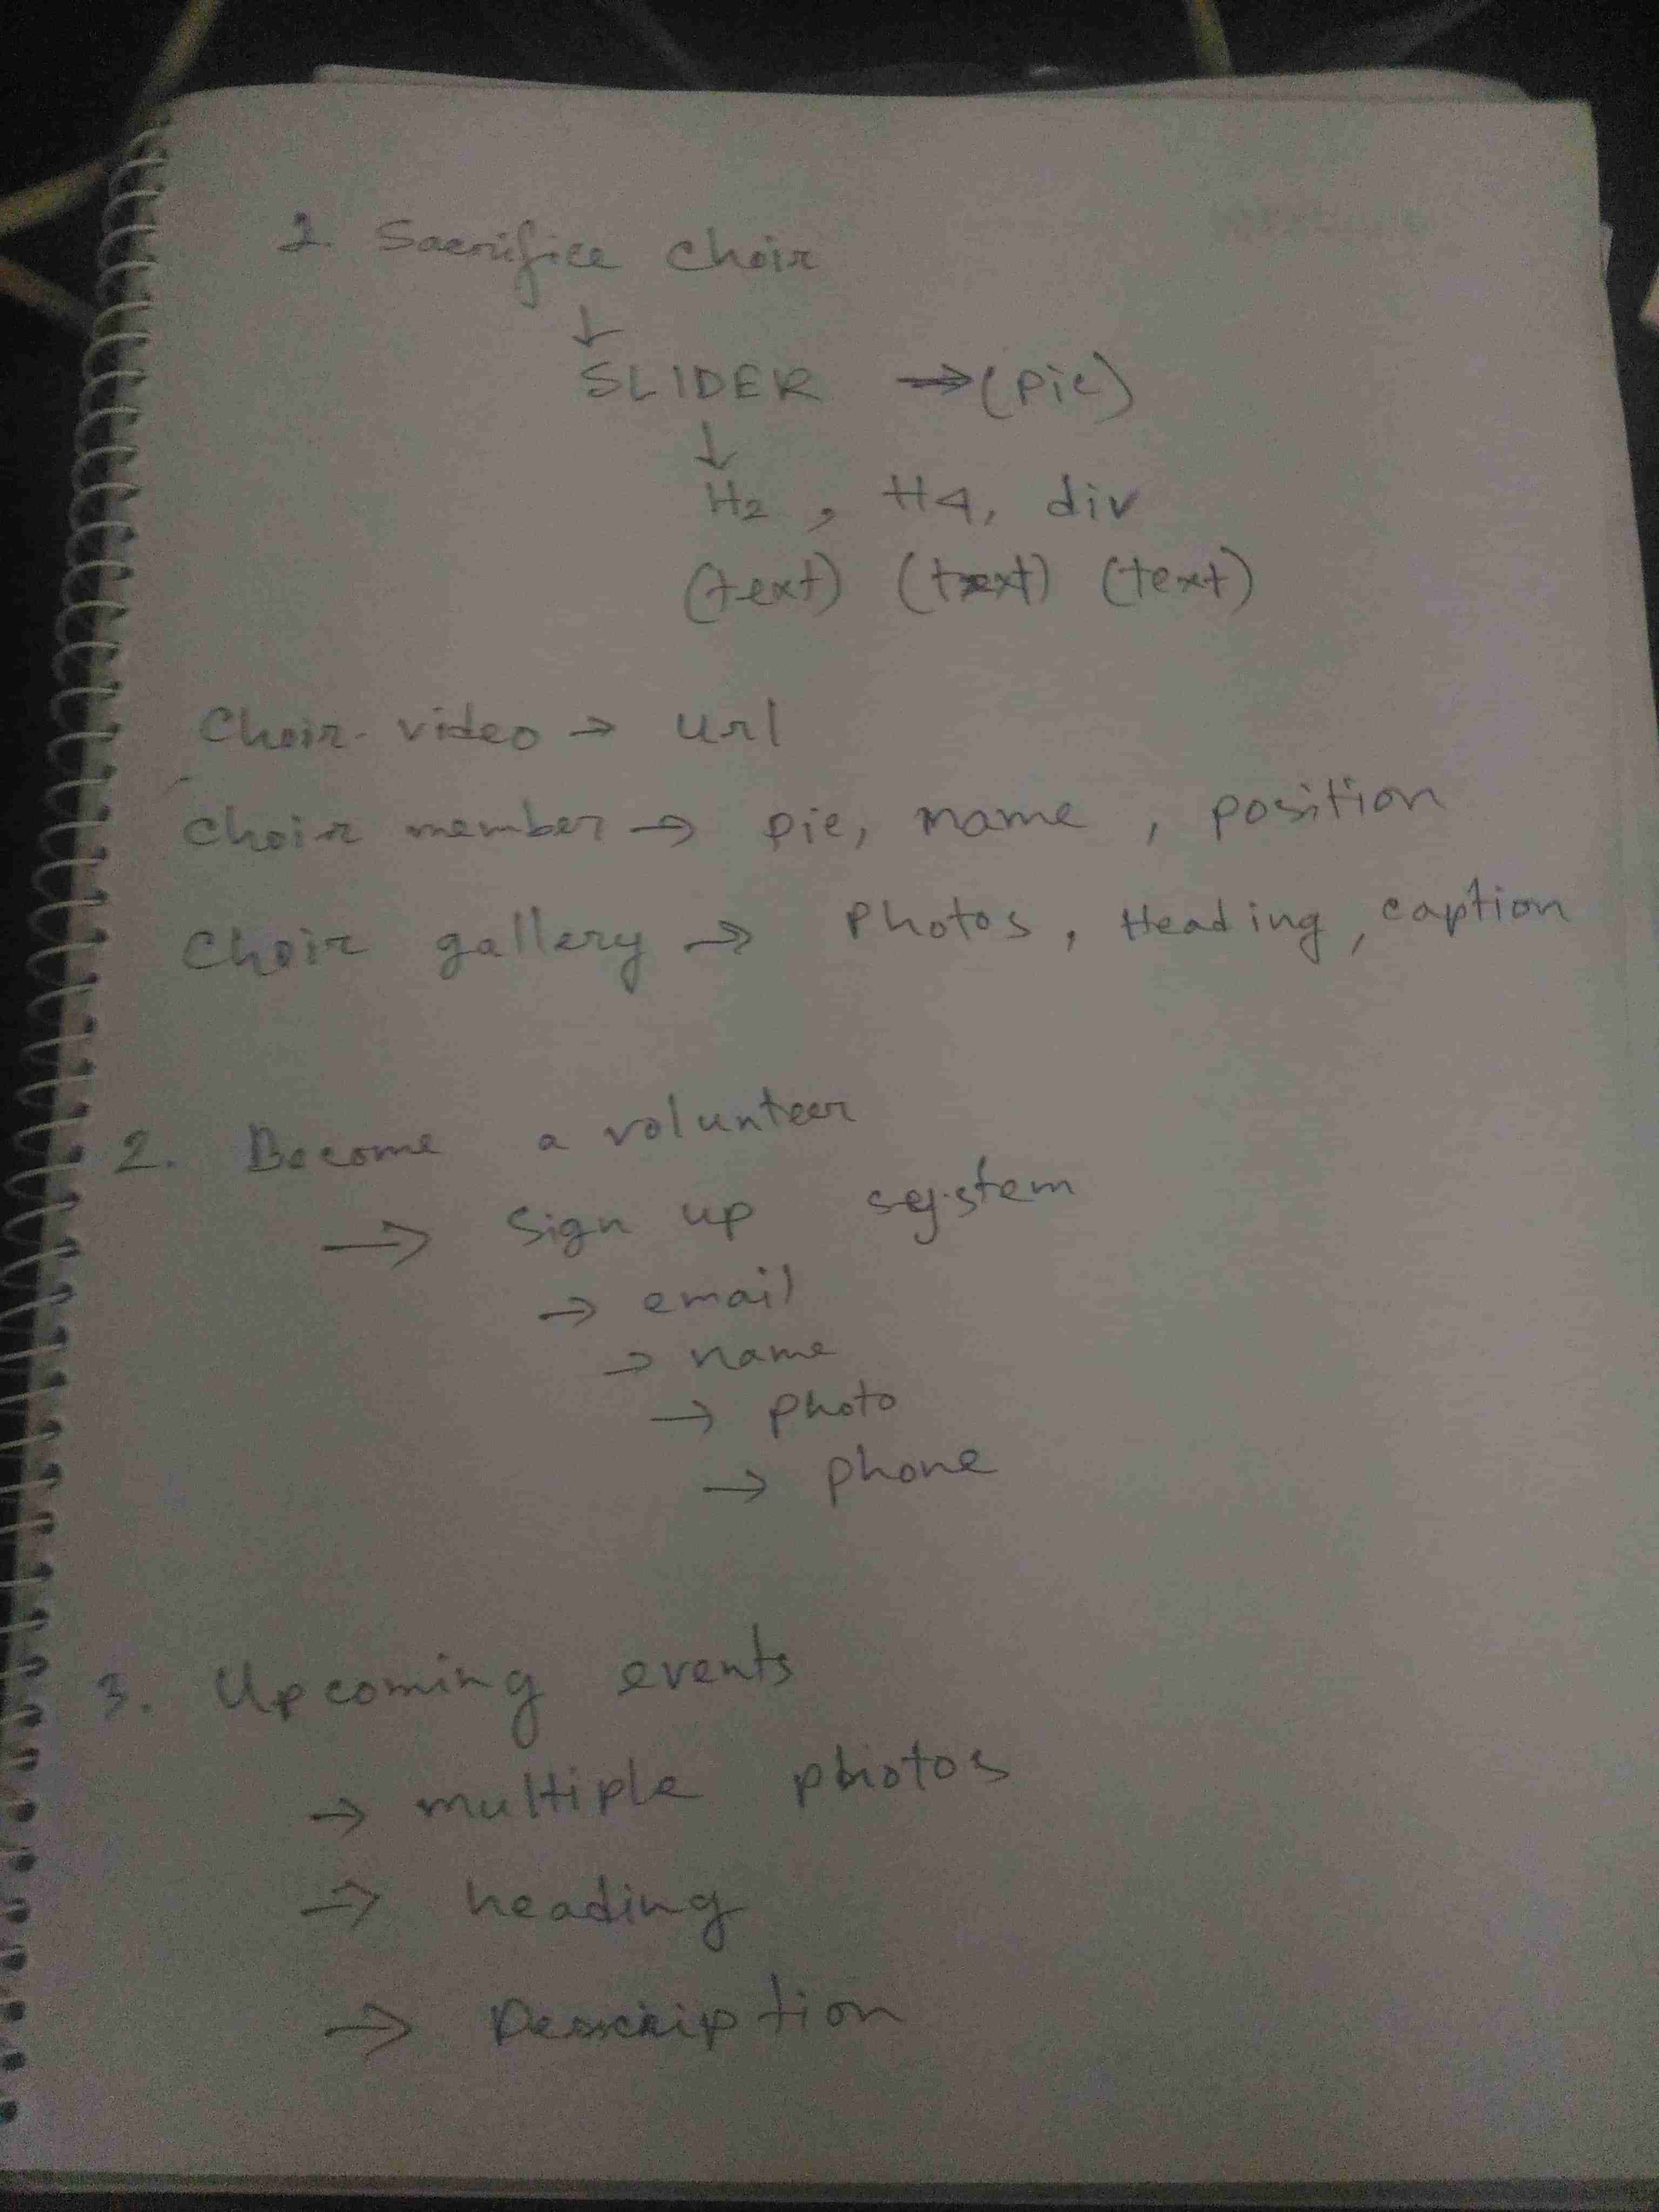 1. Sacrifice choir
↓
SLIDER → (pic)
↓
H2, H4, div
(text) (text) (text)
Choir video → url
choir member → pic, name, position
Choir gallery → Photos, Heading, caption
2. Become a volunteer
→ Sign up system
→ email
→ name
→ photo
→ phone
3. Upcoming events
→ multiple photos
→ heading
→ Description